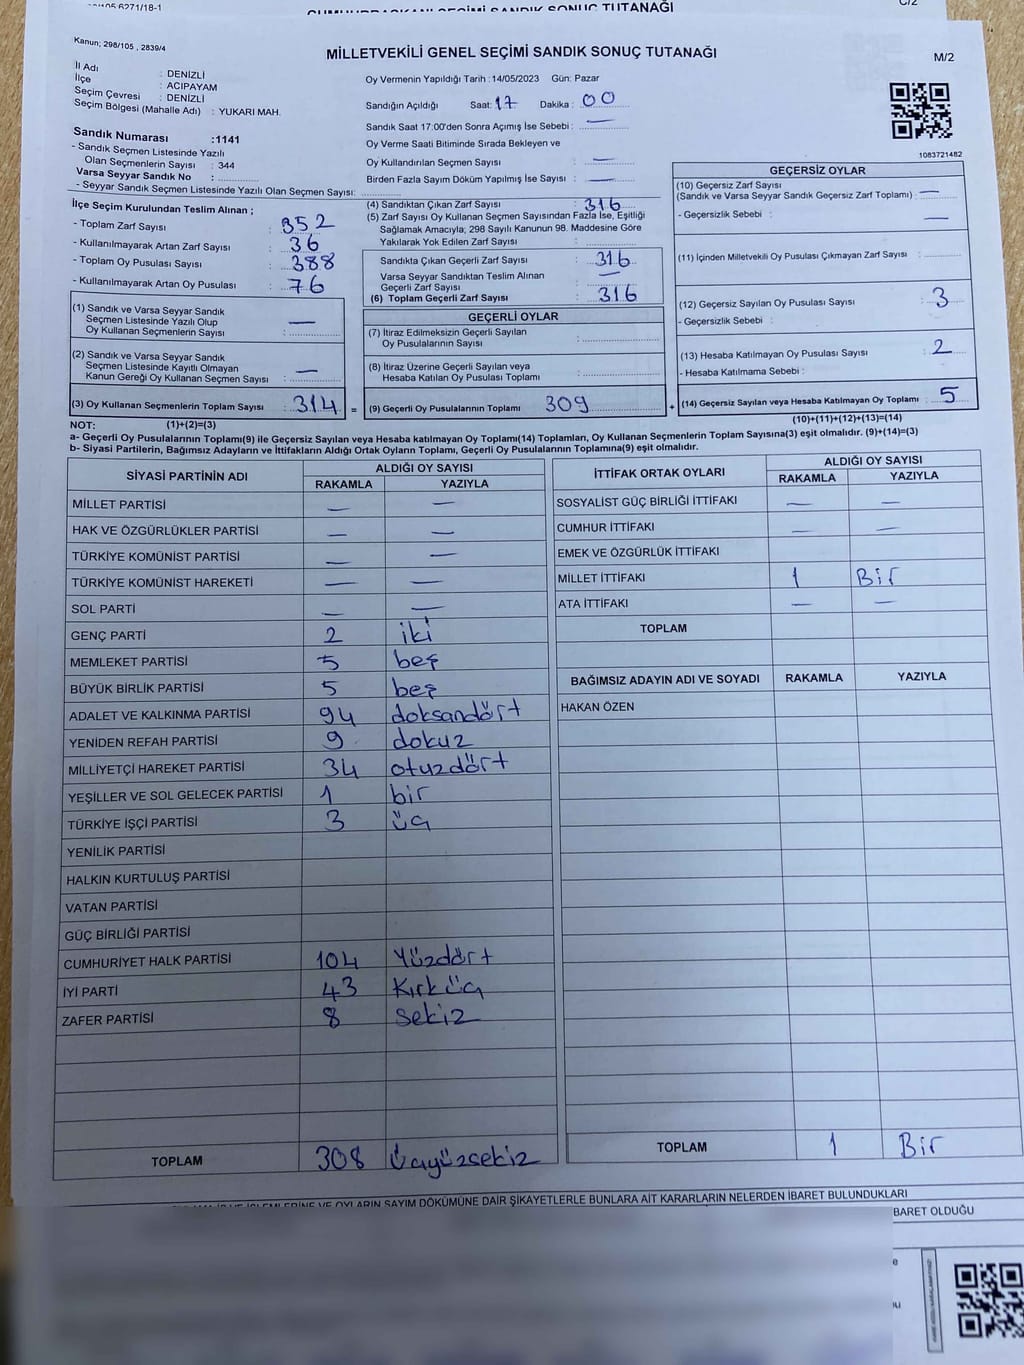 6271/18-1
CUMHURBAŞKANI SEÇİMİ SANDIK SONUÇ TUTANAĞI
C/2
Kanun; 298/105 , 2839/4
MİLLETVEKİLİ GENEL SEÇİMİ SANDIK SONUÇ TUTANAĞI
M/2
İl Adı : DENİZLİ
İlçe : ACIPAYAM
Seçim Çevresi : DENİZLİ
Seçim Bölgesi (Mahalle Adı) : YUKARI MAH.
Sandık Numarası :1141
- Sandık Seçmen Listesinde Yazılı
Olan Seçmenlerin Sayısı : 344
Varsa Seyyar Sandık No :
- Seyyar Sandık Seçmen Listesinde Yazılı Olan Seçmen Sayısı:
Oy Vermenin Yapıldığı Tarih :14/05/2023 Gün: Pazar
Sandığın Açıldığı Saat: 17 Dakika : 00
Sandık Saat 17:00'den Sonra Açımış İse Sebebi : —
Oy Verme Saati Bitiminde Sırada Bekleyen ve
Oy Kullandırılan Seçmen Sayısı : —
Birden Fazla Sayım Döküm Yapılmış İse Sayısı : —
1083721482
İlçe Seçim Kurulundan Teslim Alınan ;
- Toplam Zarf Sayısı : 352
- Kullanılmayarak Artan Zarf Sayısı : 36
- Toplam Oy Pusulası Sayısı : 388
- Kullanılmayarak Artan Oy Pusulası : 76
(1) Sandık ve Varsa Seyyar Sandık
Seçmen Listesinde Yazılı Olup
Oy Kullanan Seçmenlerin Sayısı : —
(2) Sandık ve Varsa Seyyar Sandık
Seçmen Listesinde Kayıtlı Olmayan
Kanun Gereği Oy Kullanan Seçmen Sayısı : —
(3) Oy Kullanan Seçmenlerin Toplam Sayısı : 314 =
(4) Sandıktan Çıkan Zarf Sayısı : 316
(5) Zarf Sayısı Oy Kullanan Seçmen Sayısından Fazla İse, Eşitliği
Sağlamak Amacıyla; 298 Sayılı Kanunun 98. Maddesine Göre
Yakılarak Yok Edilen Zarf Sayısı :
Sandıkta Çıkan Geçerli Zarf Sayısı : 316
Varsa Seyyar Sandıktan Teslim Alınan
Geçerli Zarf Sayısı : —
(6) Toplam Geçerli Zarf Sayısı : 316
GEÇERLİ OYLAR
(7) İtiraz Edilmeksizin Geçerli Sayılan
Oy Pusulalarının Sayısı :
(8) İtiraz Üzerine Geçerli Sayılan veya
Hesaba Katılan Oy Pusulası Toplamı :
(9) Geçerli Oy Pusulalarının Toplamı 309 +
GEÇERSİZ OYLAR
(10) Geçersiz Zarf Sayısı
(Sandık ve Varsa Seyyar Sandık Geçersiz Zarf Toplamı) : —
- Geçersizlik Sebebi : —
(11) İçinden Milletvekili Oy Pusulası Çıkmayan Zarf Sayısı :
(12) Geçersiz Sayılan Oy Pusulası Sayısı : 3
- Geçersizlik Sebebi :
(13) Hesaba Katılmayan Oy Pusulası Sayısı : 2
- Hesaba Katılmama Sebebi :
(14) Geçersiz Sayılan veya Hesaba Katılmayan Oy Toplamı : 5
NOT: (1)+(2)=(3)
(10)+(11)+(12)+(13)=(14)
a- Geçerli Oy Pusulalarının Toplamı(9) ile Geçersiz Sayılan veya Hesaba katılmayan Oy Toplamı(14) Toplamları, Oy Kullanan Seçmenlerin Toplam Sayısına(3) eşit olmalıdır. (9)+(14)=(3)
b- Siyasi Partilerin, Bağımsız Adayların ve İttifakların Aldığı Ortak Oyların Toplamı, Geçerli Oy Pusulalarının Toplamına(9) eşit olmalıdır.
SİYASİ PARTİNİN ADI ALDIĞI OY SAYISI
RAKAMLA YAZIYLA
MİLLET PARTİSİ — —
HAK VE ÖZGÜRLÜKLER PARTİSİ — —
TÜRKİYE KOMÜNİST PARTİSİ — —
TÜRKİYE KOMÜNİST HAREKETİ — —
SOL PARTİ — —
GENÇ PARTİ 2 iki
MEMLEKET PARTİSİ 5 beş
BÜYÜK BİRLİK PARTİSİ 5 beş
ADALET VE KALKINMA PARTİSİ 94 doksandört
YENİDEN REFAH PARTİSİ 9 dokuz
MİLLİYETÇİ HAREKET PARTİSİ 34 otuzdört
YEŞİLLER VE SOL GELECEK PARTİSİ 1 bir
TÜRKİYE İŞÇİ PARTİSİ 3 üç
YENİLİK PARTİSİ
HALKIN KURTULUŞ PARTİSİ
VATAN PARTİSİ
GÜÇ BİRLİĞİ PARTİSİ
CUMHURİYET HALK PARTİSİ 104 Yüzdört
İYİ PARTİ 43 Kırküç
ZAFER PARTİSİ 8 Sekiz
TOPLAM 308 Üçyüzsekiz
İTTİFAK ORTAK OYLARI ALDIĞI OY SAYISI
RAKAMLA YAZIYLA
SOSYALİST GÜÇ BİRLİĞİ İTTİFAKI — —
CUMHUR İTTİFAKI — —
EMEK VE ÖZGÜRLÜK İTTİFAKI
MİLLET İTTİFAKI 1 Bir
ATA İTTİFAKI — —
TOPLAM
BAĞIMSIZ ADAYIN ADI VE SOYADI RAKAMLA YAZIYLA
HAKAN ÖZEN
TOPLAM 1 Bir
OYLARIN SAYIM DÖKÜMÜNE DAİR ŞİKAYETLERLE BUNLARA AİT KARARLARIN NELERDEN İBARET BULUNDUKLARI
BARET OLDUĞU